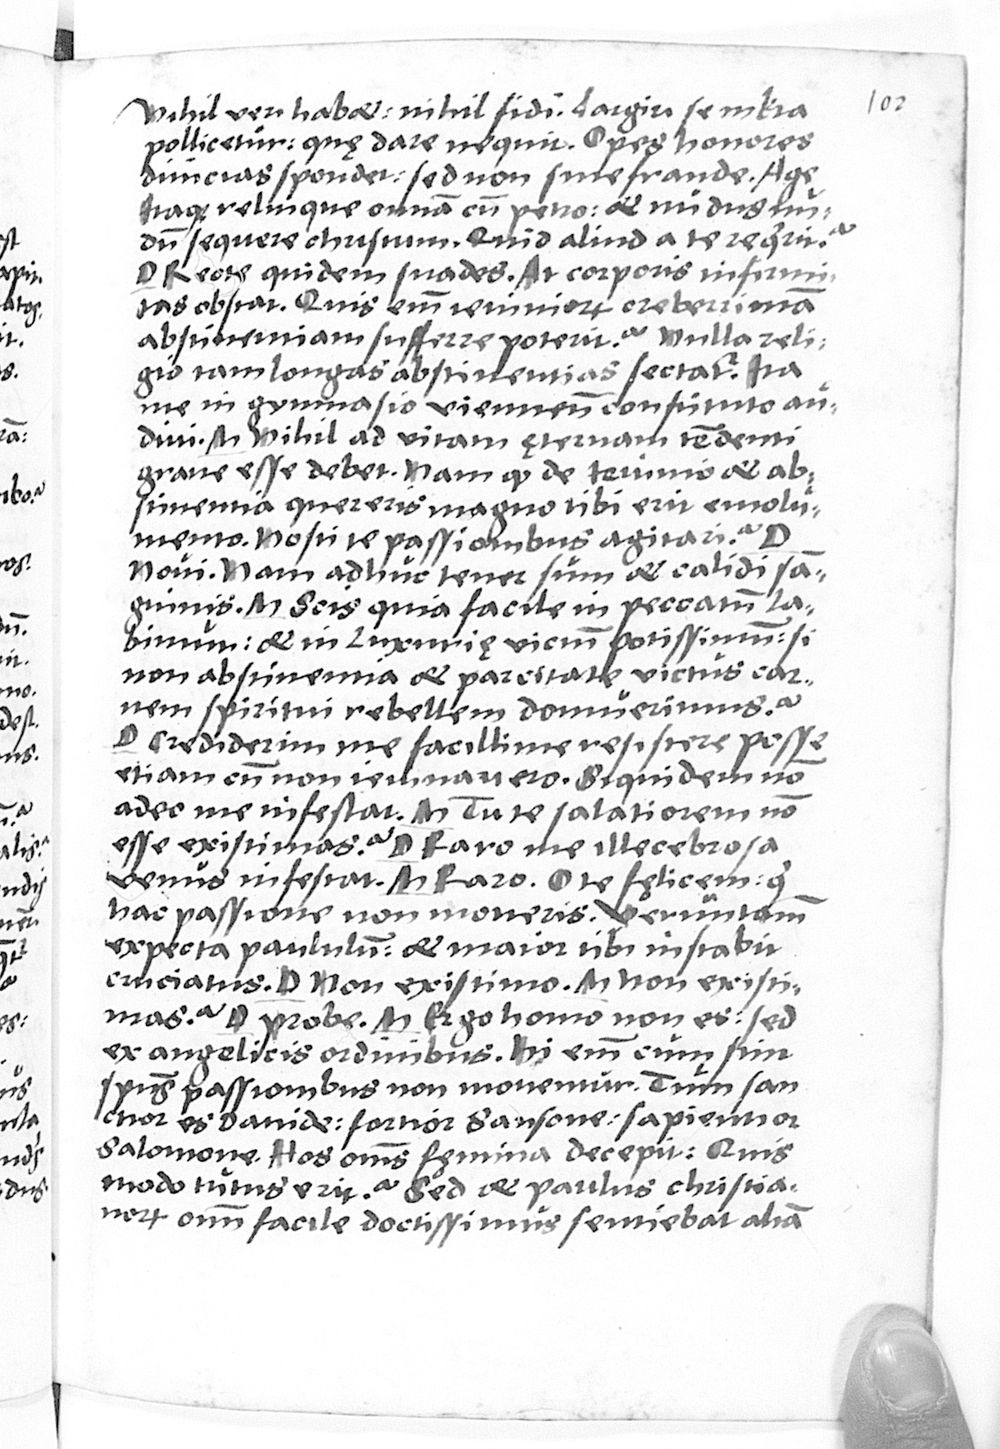 102
Nihil veri habet: nihil fidi. Largiri se multa
pollicetur: quę dare nequit. Opes honores
diuicias spondet: sed non sine fraude. Age
Itaqȝ relinque omīa cū petro: & nudus nu-
dū sequere christum. Quid aliud a te req̇rit?
D Recte quidem suades. At corporis infirmi-
tas obstat. Quis em̄ ieiuniorꝝ creberrimā
abstinentiam sufferre poterit? Nulla reli-
gio tam longas abstinentias sectat᷑. Ita
me in gymnasio viennen̄ constituto au-
diui. M Nihil ad vitam ęternam tēdenti
graue esse debet. Nam qȝ de ieiunio & ab-
stinentia quereris magno tibi erit emolu-
mento. Nosti te passionibus agitari? D
Noui. Nam adhuc tener sum & calidi sā-
guinis. M Scis quia facile in peccatū la-
bimur: & in Luxurię viciū potissimū: si
non abstinentia & parcitate victus car-
nem spiritui rebellem domuerimus?
D Crediderim me facillime resistere posse
etiam cū non ieiunauero. Siquidem nō
adeo me infestat. M Tu te salatiorem nō
esse existimas? D Raro me illecebrosa
venus infestat. M Raro. O te fęlicem: q̇
hac passione non moueris. Verūntam̄
expecta paululū: & maior tibi instabit
cruciatus. D Non existimo. M Non existi-
mas? D probe. M Ergo homo non es: sed
ex angelicis ordinibus. Hi em̄ cum sint
spūs passionibus non mouentur. Tum san
ctior es dauide: fortior Sansone: sapientior
Salomone. Hos om̄s fęmina decepit: Quis
modo tutus erit? Sed & paulus christia-
norꝝ om̄ facile doctissimus sentiebat aliā